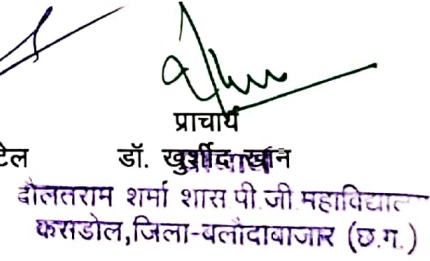 प्राचार्य
टेल डॉ. खुर्शीद खान
दौलतराम शर्मा शास पी.जी.महाविद्याल
कसडोल,जिला-बलौदाबाजार (छ.ग.)